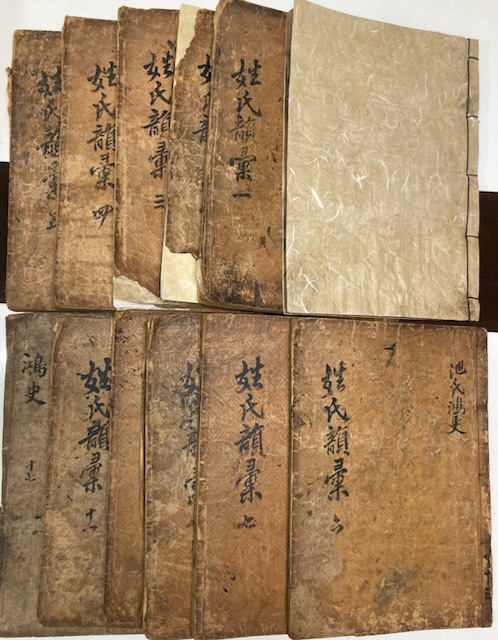 姓氏韻彙一
姓氏韻彙三
姓氏韻彙四
姓氏韻彙五
池氏鴻史
姓氏韻彙六
姓氏韻彙七
姓氏韻彙十一
鴻史
十七